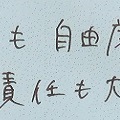 も 自由度
責任も大